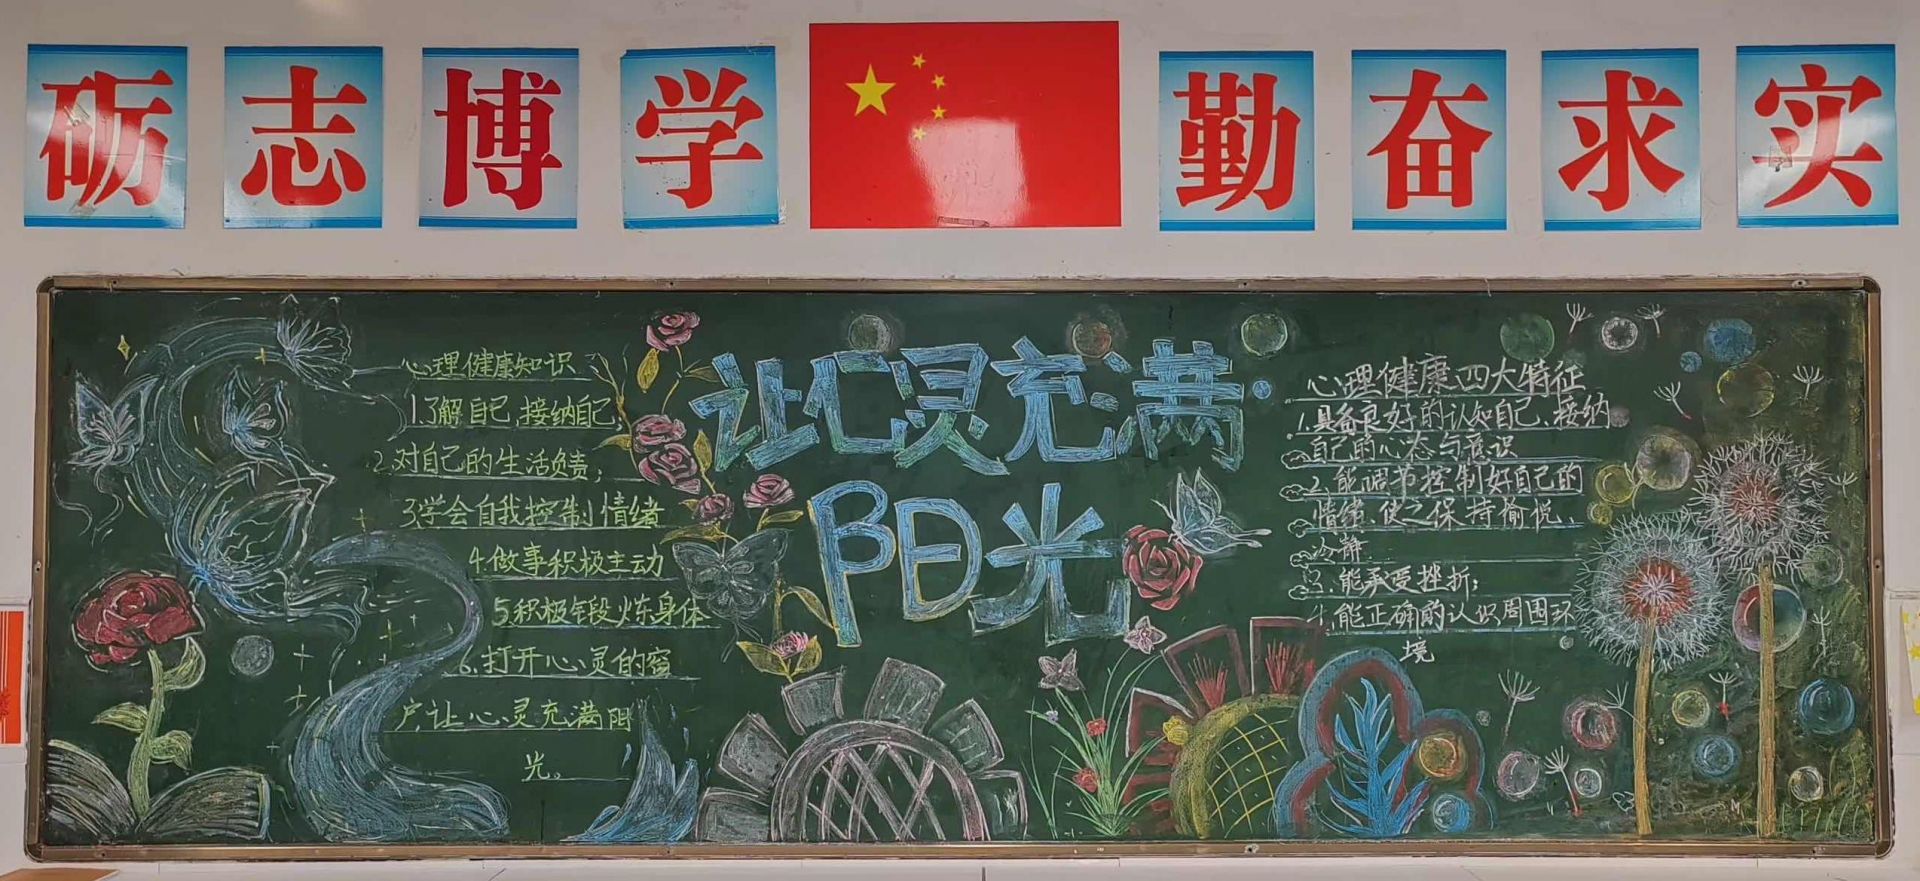 砺志博学 勤奋求实
心理健康知识
1.了解自己,接纳自己
2.对自己的生活负责;
3学会自我控制情绪
4.做事积极主动
5积极锻炼身体
6.打开心灵的窗
户让心灵充满阳
光。
让心灵充满
阳光
心理健康四大特征
1.具备良好的认知自己、接纳
自己的心态与意识
2.能调节控制好自己的
情绪,使之保持愉悦、
冷静
3.能承受挫折;
4.能正确的认识周围环
境